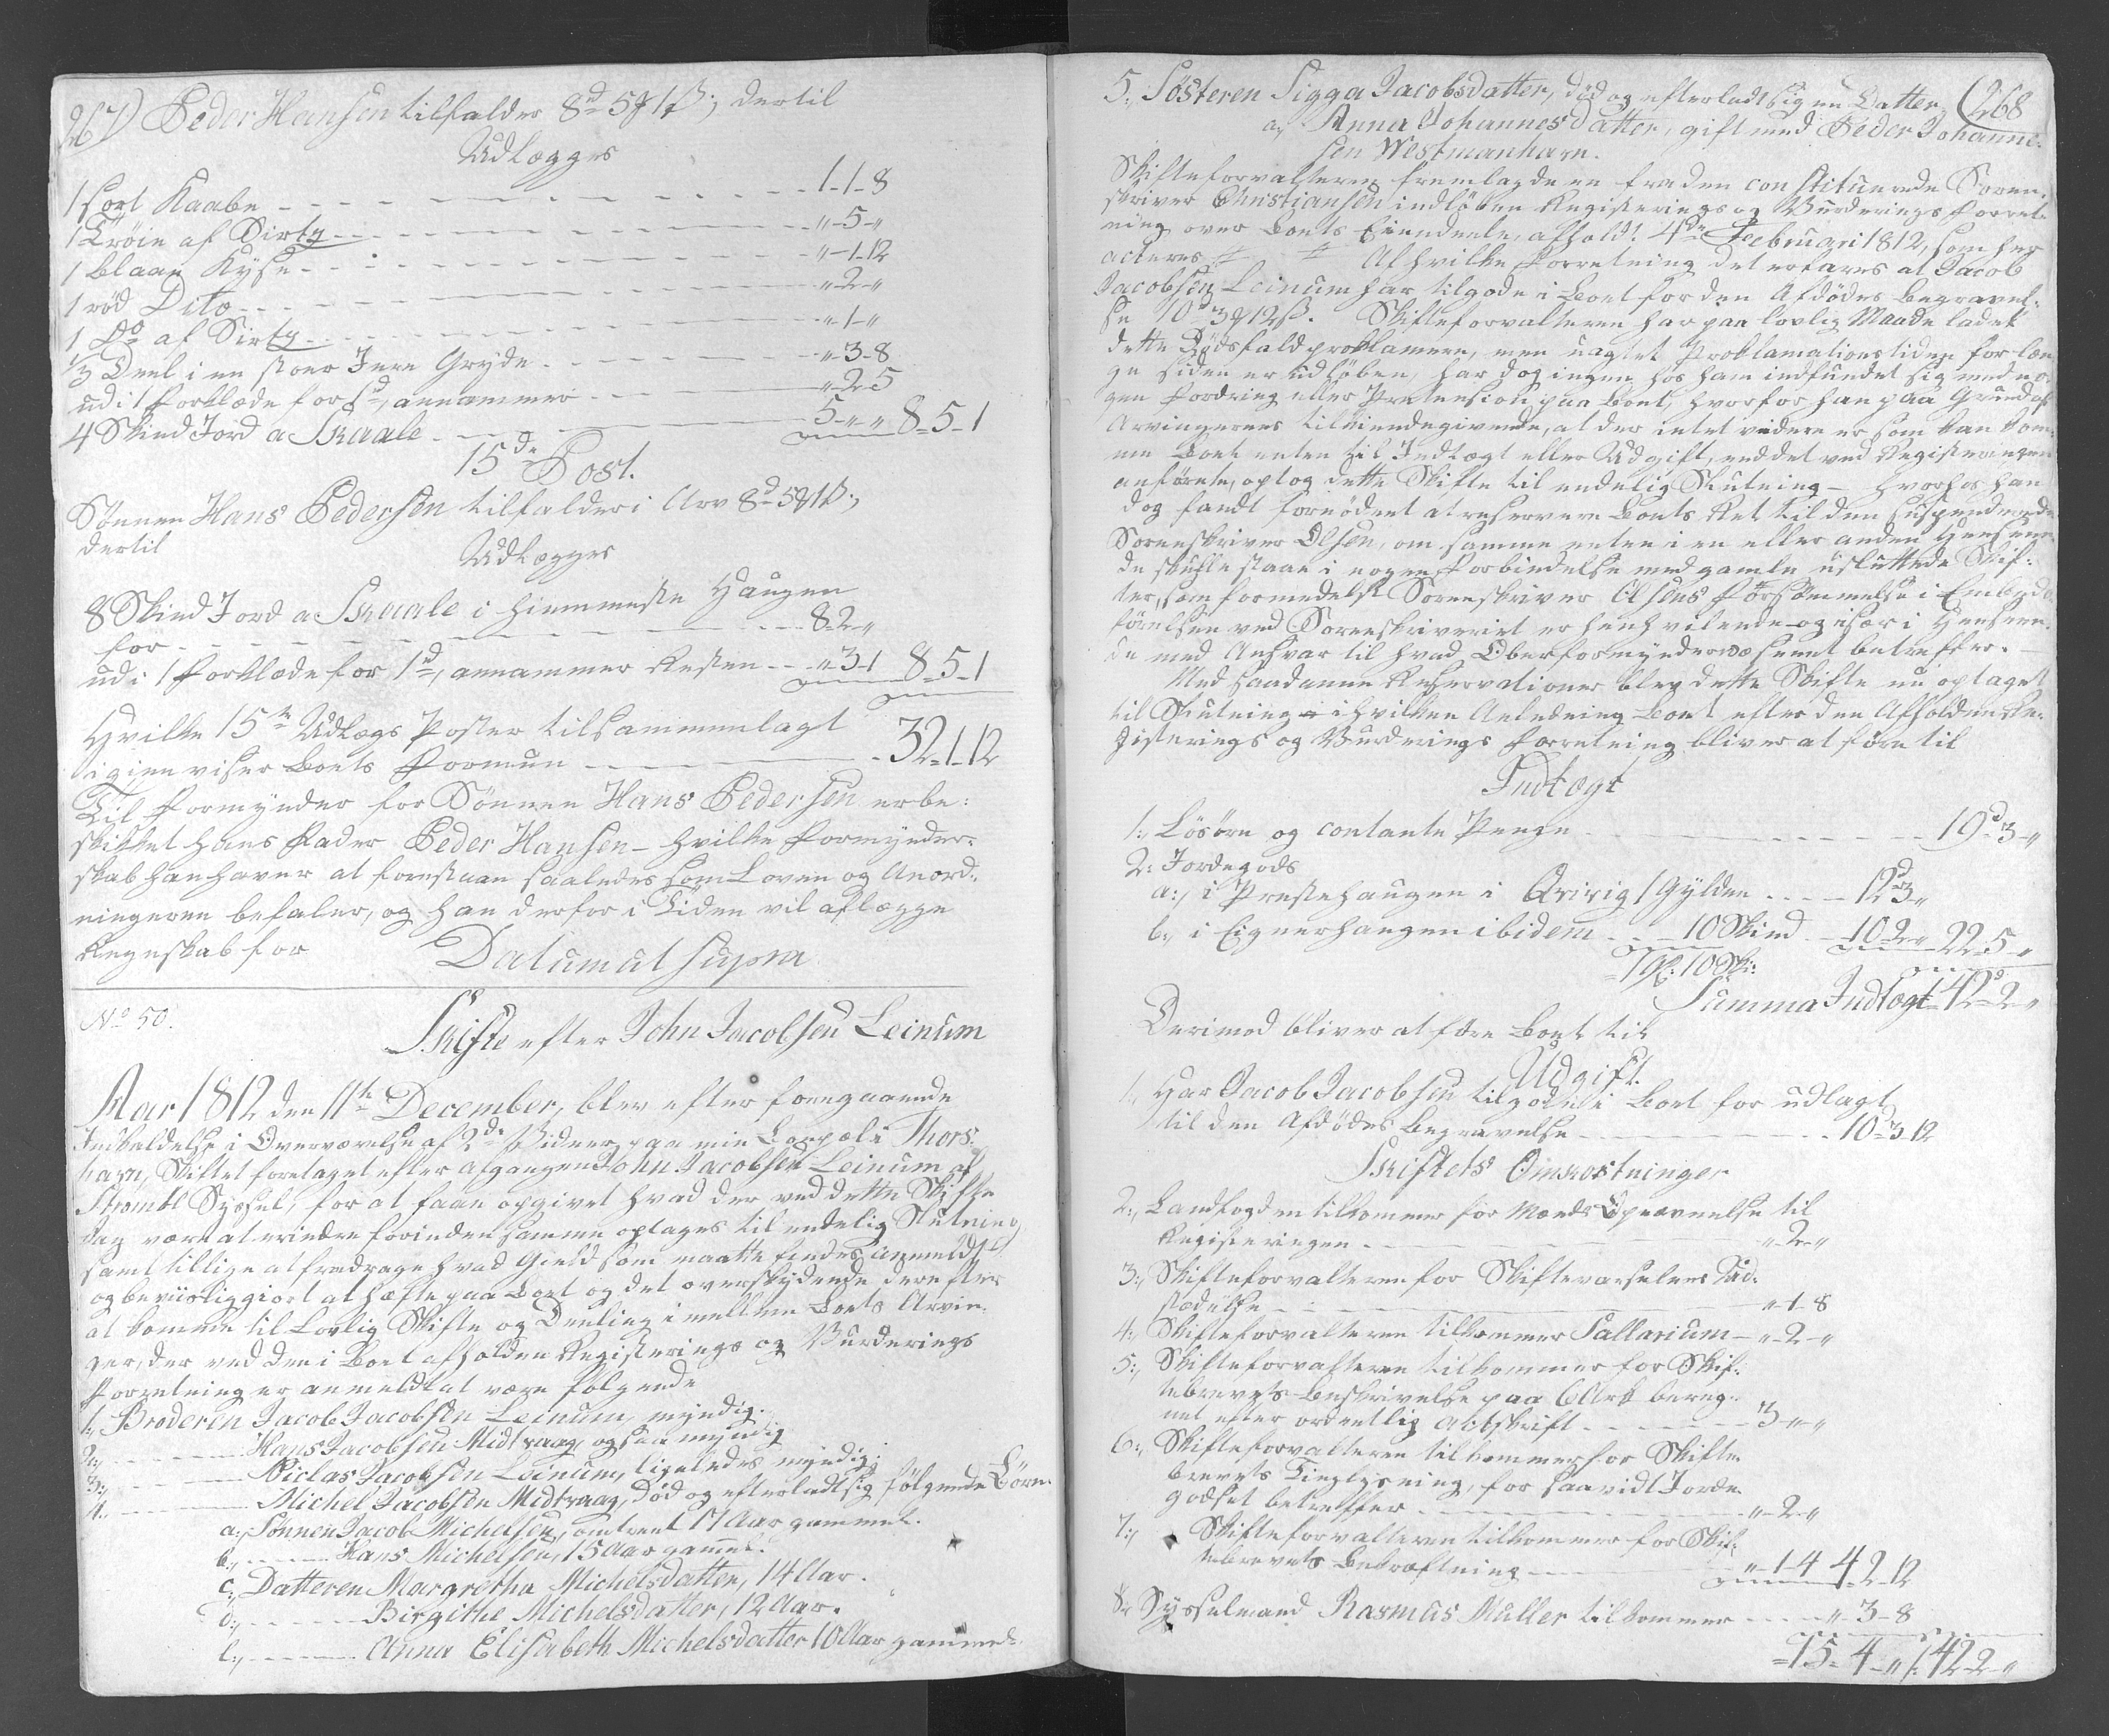 267) Peder Hansen tilfalder 8d 5g 1ß; dertil
Udlægges
1 sort Kaabe - - - 1-1-8
1 Trøie af Sirtz - - - "-5-"
1 blaae Kyse - - - "-1-12
1 rød Dito - - - "-2-"
1 Do af Sirtz - - - "-1-"
1/3 Deel i en stoer Jern Gryde - - - "-3-8
udi 1 Forklæde for annammer - - - "-2-5
4 Skind Jord a Skaale - - - 5-"-" 8-5-1
15de Post.
Sønnen Hans Pedersen tilfalder i Arv 8d 5g 1ß;
dertil
Udlægges
8 Skind Jord a Skaale i Hiemmeste Haugen
for - - - 8-2-"
udi 1 Forklæde for 1d, annammer Resten - - "-3-1 8-5-1
Hvilke 15te Udlægs Poster tilsammenlagt
igien viser Boets Formue - - - 32-1-12
Til Formynder for Sønnen Hans Pedersen er be-
skikket hans Fader Peder Hansen - hvilke Formynder-
skab han haver at forestaae saaledes som Loven og Anord-
ningerne befaler, og han derfor i Tiden vil aflægge
Regnskab for Datum ut supra
No 50.
Skifte efter John Jacobsen Leinum
Aar 1812 den 11te December, blev efter foregaaende
Indkaldelse i Overværelse af 2de Vidner, paa min Boepæl i Thors-
havn, Skiftet foretaget efter afgangen John Jacobsen Leinum af
Strømøe Syssel, for at faae opgivet hvad der ved dette Skifte
dag være at erindre forinden samme optages til endelig Slutning
samt tillige at fradrage hvad Gield som maatte findes anmeldt
og beviisliggiort at hæfte paa Boet og det overskydende derefter
at komme til Lovlig Skifte og Deeling imellem Boets Arvin-
ger, der ved den i Boet afholden Registerings og Vurderings
Forretning er anmeldt at være følgende
1., Broderen Jacob Jacobsen Leinum, myndig.
2., - - - Hans Jacobsen Midtvaag, ogsaa myndig
3., - - - Niclas Jacobsen Leinum, ligeledes myndig;
4., - - - Michel Jacobsen Midtvaag, død og efterladt sig følgende Børn.
a., Sønnen Jacob Michelsen, omtrent 17 Aar gammel.
b., - - - Hans Michelsen, 15 Aar gammel.
c., Datteren Margretha Michelsdatter, 14 Aar.
d., - - - Birgithe Michelsdatter, 12 Aar.
e., - - - Anna Elisabeth Michelsdatter 10 Aar gammel.
(268
5., Søsteren Sigga Jacobsdatter, død og efterladt sig en Datter,
a., Anna Johannesdatter, gift med Peder Johanne-
sen Westmanhavn.
Skifteforvalteren fremlagde en fra den constituerede Soren-
skriver Christiansen indløben Registerings og Vurderings Forret-
ning over Boets Eiendeele, afholdt 4de Februari 1812, som her
acteres Af hvilke Forretning det erfares at Jacob
Jacobsen Leinum har tilgode i Boet for den Afdødes Begravel-
se 10d 3g 12ß. Skifteforvalteren har paa lovlig Maade ladet
dette Dødsfald proklamere, men uagtet Proklamationstiden for læn-
ge siden er udløben, har dog ingen hos ham indfundet sig med no-
gen Fordring eller Prætension paa Boet, hvorfor han paa Grund af
Arvingernes tilkiendegivende, at der intet videre er som kan kom-
me Boet enten til Indtægt eller Udgift, end det ved Registeringen
anførte, optog dette Skifte til endelig Slutning - hvorhos han
dog fandt fornødent at reservere Boets Ret til den suspenderede
Sorenskriver Olsen, om samme enten i en eller anden Henseen-
de skulle staae i nogen Forbindelse med gamle usluttede Skif-
ter, som formedelst Sorenskriver Olsens Forsømmelse i Embeds-
førelsen ved Sorenskriveriet er henhvilende og især i Henseen-
de med Ansvar til hvad Oberformynderwæsenet betreffer. -
Med saadanne Reservationer blev dette Skifte nu optaget
til Slutning - i hvilken Anledning Boet efter den Afholdne Re-
gisterings og Vurderings Forretning bliver at føre til
Indtægt
1., Løsøre og contante Penge - - - 19d 3-"
2: Jordegods
a., i Prestehaugen i Qvivig 1 Gylden - - - 12d 3-"
b., i Eignerhaugen ibidem - - - 10 Skind - 10-2-" 22-5-"
1 Gl: 10 Sk:
Summa Indtægt 42d-2-"
Derimod bliver at føre Boet til
Udgift.
1., Har Jacob Jacobsen tilgode i Boet for udlagt
til den Afdødes Begravelse - - - 10d-3-12
Skiftets Omkostninger
2., Landfogden tilkommer for Mænds Opnævnelse til
Registeringen - - - "-2-"
3., Skifteforvalteren for Skiftevarselens Ud-
stædelse - - - "-1-8
4., Skifteforvalteren tilkommer Sallarium - "-2-"
5., Skifteforvalteren tilkommer for Skif-
tebrevets Beskrivelse paa 6 Ark bereg-
net efter ordentlig Actskrift - - - 3-"-"
6., Skifteforvalteren tilkommer for Skifte-
brevets Tinglysning, for saavidt Jorde-
godset betreffer - - - "-2-"
7., Skifteforvalteren tilkommer for Skif-
tebrevets Bekræftning - - - "-1-4 4-2-12
8. Sysselmand Rasmus Müller tilkommer - - - "-3-8
15-4-" /: 42-2-"